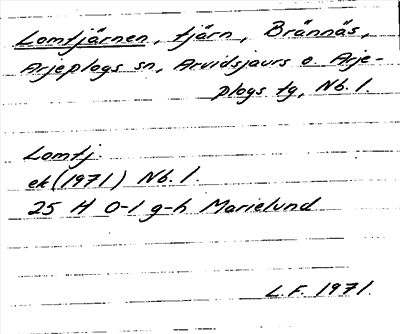 Lomtjärnen, tjärn, Brännäs,
Arjeplogs sn, Arvidsjaurs o. Arje-
plogs tg, Nb. l.
Lomtj.
ek (1971) Nb. l.
25 H 0-1 g-h Marielund
L.F. 1971.